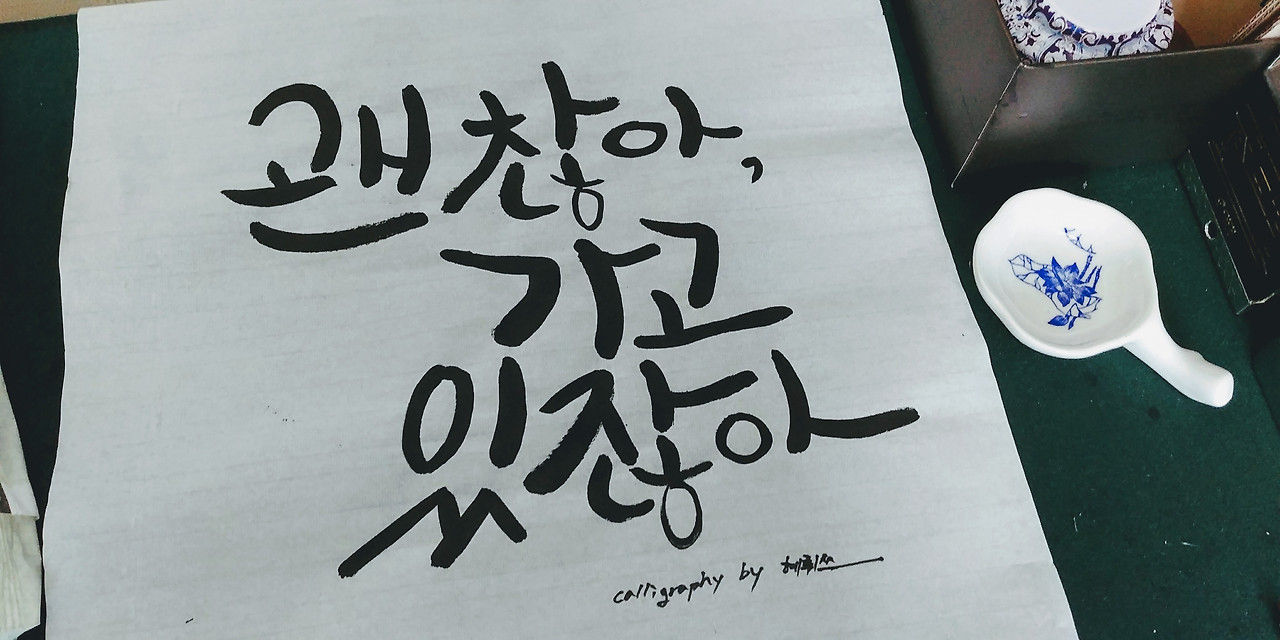 괜찮아,
가고
있잖아
calligraphy by